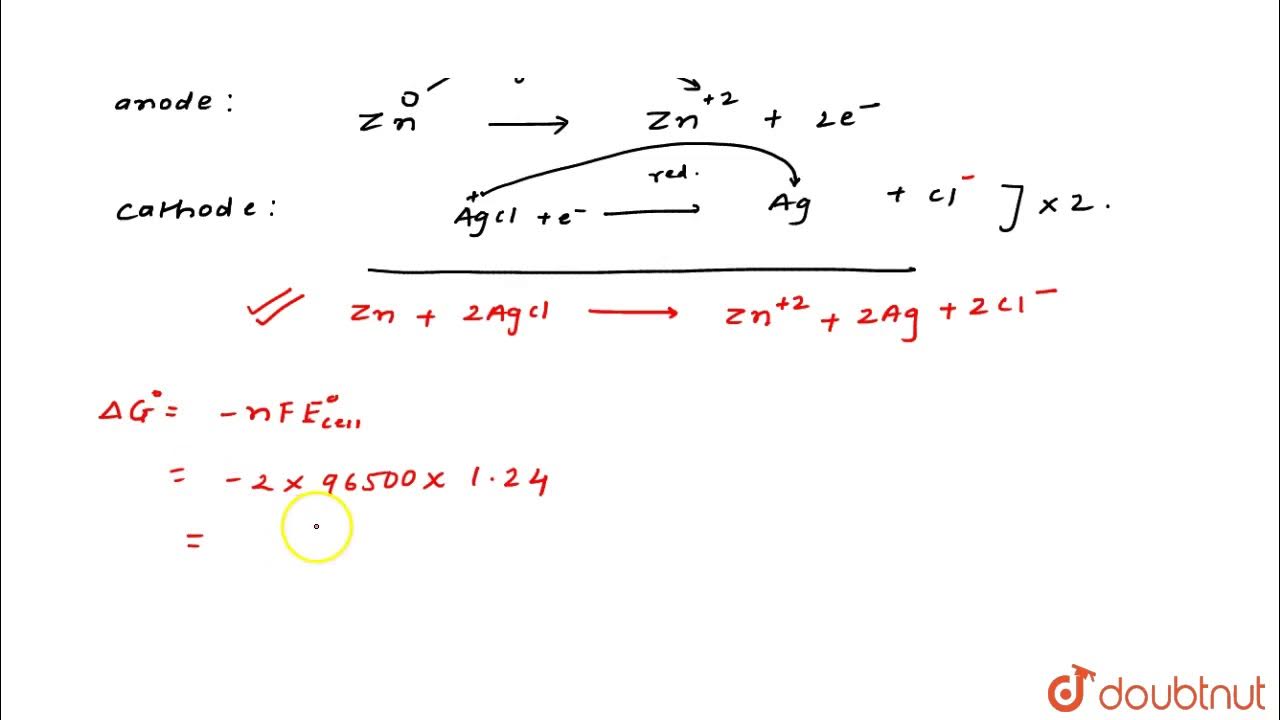 anode: Zn⁰ ⟶ Zn⁺² + 2e⁻
red.
cathode: A⁺gCl + e⁻ ⟶ Ag + Cl⁻ ] × 2.
Zn + 2AgCl ⟶ Zn⁺² + 2Ag + 2Cl⁻
ΔG° = -nFE°cell
= -2 × 96500 × 1.24
=
doubtnut